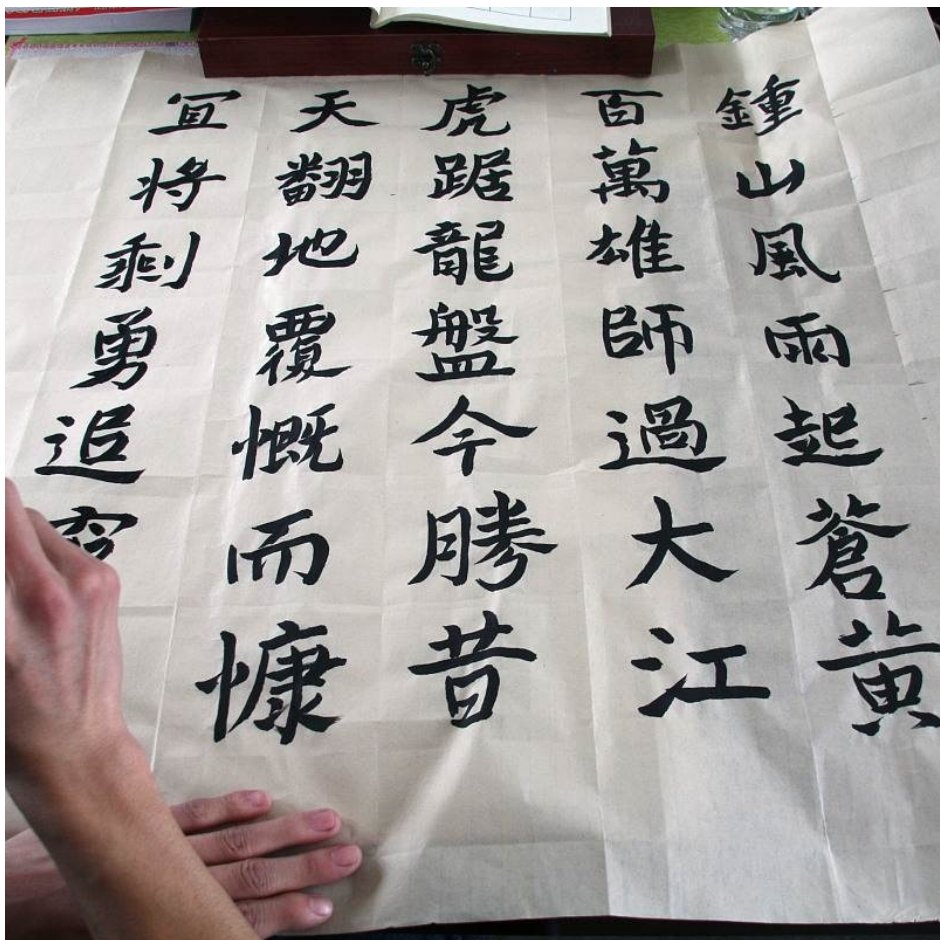 鍾山風雨起蒼黃
百萬雄師過大江
虎踞龍盤今勝昔
天翻地覆慨而慷
宜将剩勇追